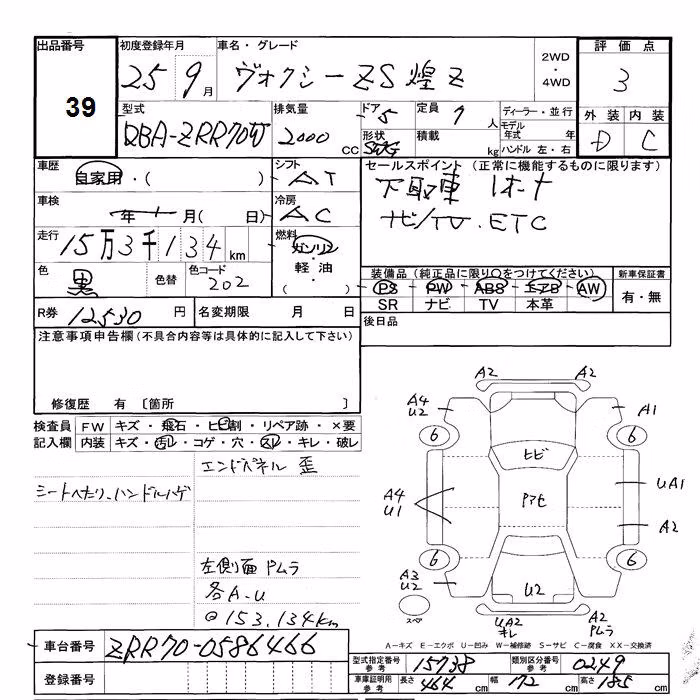 出品番号 39
初度登録年月 25年 9月
車名・グレード ヴォクシーZS 煌Z
2WD・4WD
評価点 3
外装 D 内装 C
型式 DBA-ZRR70W
排気量 2000 cc
ドア 5 形状
定員 7人 積載 kg
ディーラー・並行
モデル年式 年
ハンドル 左・右
車歴 自家用・( )
シフト AT
車検 年 月( 日)
冷房 AC
走行 15万3千134km
燃料 ガソリン・軽油・( )
色 黒 色替 色コード 202
R券 12530円 名変期限 月 日
セールスポイント(正常に機能するものに限ります)
下取車 1オーナー
ナビ/TV.ETC
装備品(純正品に限り○をつけてください)
PS PW ABS エアB AW
SR ナビ TV 本革
新車保証書 有・無
後日品
注意事項申告欄(不具合内容等は具体的に記入して下さい)
修復歴 有 〔箇所 〕
検査員記入欄
FW キズ・飛石・ヒビ割・リペア跡・×要
内装 キズ・汚レ・コゲ・穴・スレ・キレ・破レ
エンドパネル 歪
シートヘタリ、ハンドルハゲ
左側面 Pムラ
各A.U
@153,134km
A2 A2
A4 U2 A1
6 6
ヒビ
Pアセ
UA1
A4 U1
A2
6 6
A3 U2
U2
スペア
UA2 キレ
A2 Pムラ
A-キズ E-エクボ U-凹み W-補修跡 S-サビ C-腐食 XX-交換済
車台番号 ZRR70-0586466
登録番号
型式指定番号 参考 15738 類別区分番号 参考 0249
車庫証明用 参考 長さ 464cm 幅 172cm 高さ 185cm